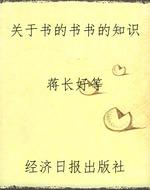 关于书的书书的知识
蒋长好等
经济日报出版社